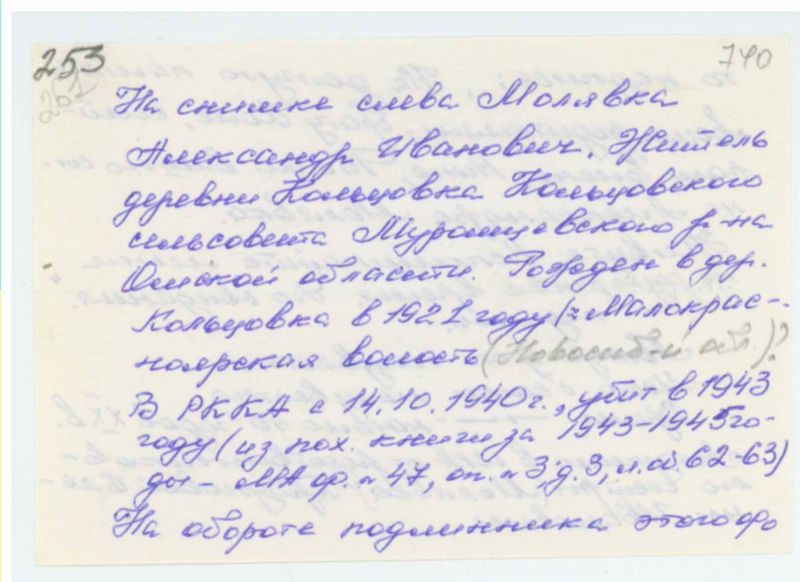 253
740
201
На снимке слева Молявка
Александр Иванович. Житель
деревни Кольцовка Кольцовского
сельсовета Муромцевского р-на
Омской области. Рожден в дер.
Кольцовка в 1921 году (: Малокрас-
ноярская волость (Новосиб-й обл.)?
В РККА с 14.10.1940г., убит в 1943
году (из пох. книги за 1943-1945 го-
ды - МА ф. № 47, оп. № 3, д. 3, л. об. 62-63)
На обороте подлинника этого фо